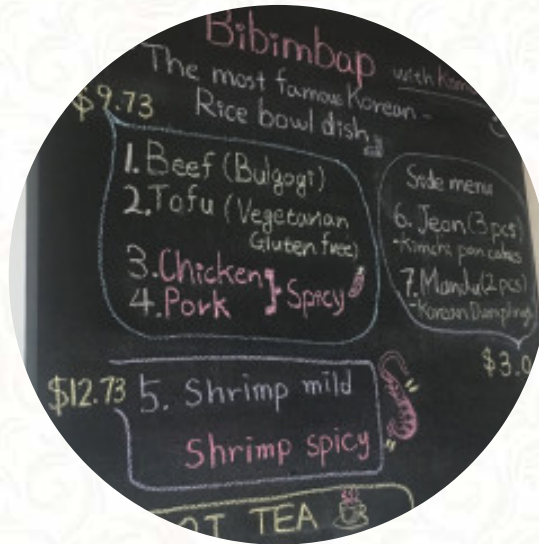 Bibimbap with
The most famous Korean -
Rice bowl dish
$9.73
1. Beef (Bulgogi)
2. Tofu (Vegetarian
Gluten free)
3. Chicken
4. Pork
Spicy
Side menu
6. Jeon (3 pcs)
-Kimchi pancakes
7. Mandu (2 pcs)
-Korean Dumpling
$3.0
$12.73
5. Shrimp mild
Shrimp spicy
TEA